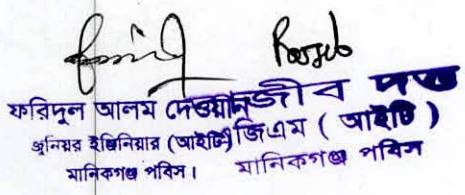 ফরিদুল আলম দেওয়ান
জুনিয়র ইঞ্জিনিয়ার (আইটি)
মানিকগঞ্জ পবিস।
রাজীব দত্ত
জিএম ( আইটি )
মানিকগঞ্জ পবিস